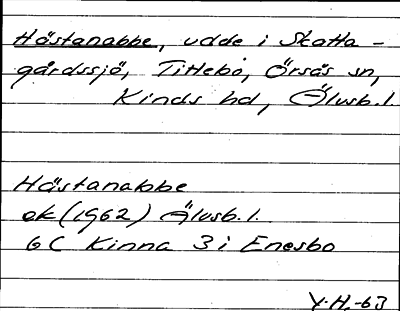 Hästanabbe, udde i Skatta-
gårdssjö, Tittebo, Örsås sn,
Kinds hd, Älvsb. l.
Hästanabbe
ek (1962) Älvsb. l.
6C Kinna 3 i Enesbo
Y.H.-63